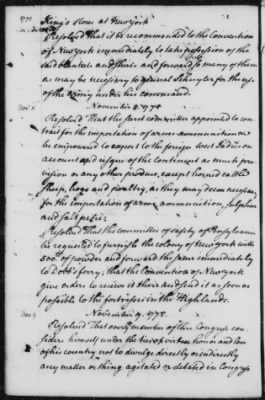 1775
King's store at New York
Resolved That it be recommended to the Convention
of New York immediately to take possession of the
said and forward so many of them
as may be necessary to general Schuyler for the use
of the army under his command.
November 8. 1775
Resolved That the secret committee appointed to con-
tract for the importation of arms ammunition &c
be empowered to export to the foreign West Indies on
account and risque of the Continent as much pro-
vision or any other produce, except horned cattle
sheep, hogs and poultry, as they may deem necessary
for the importation of arms, ammunition, sulphur
and salt petre:
Resolved That the committee of safety of Pensylvania
be requested to furnish the colony of New York with
500 lb. of powder and forward the same immediately
to Dobb's ferry; that the Convention of New York
give orders to receive it there and send it as soon as
possible to the fortresses in the Highlands.
November 9. 1775
Resolved That every member of this Congress con-
siders himself under the ties of virtue honor and love
of his country not to divulge directly or indirectly
any matter or thing agitated or debated in Congress